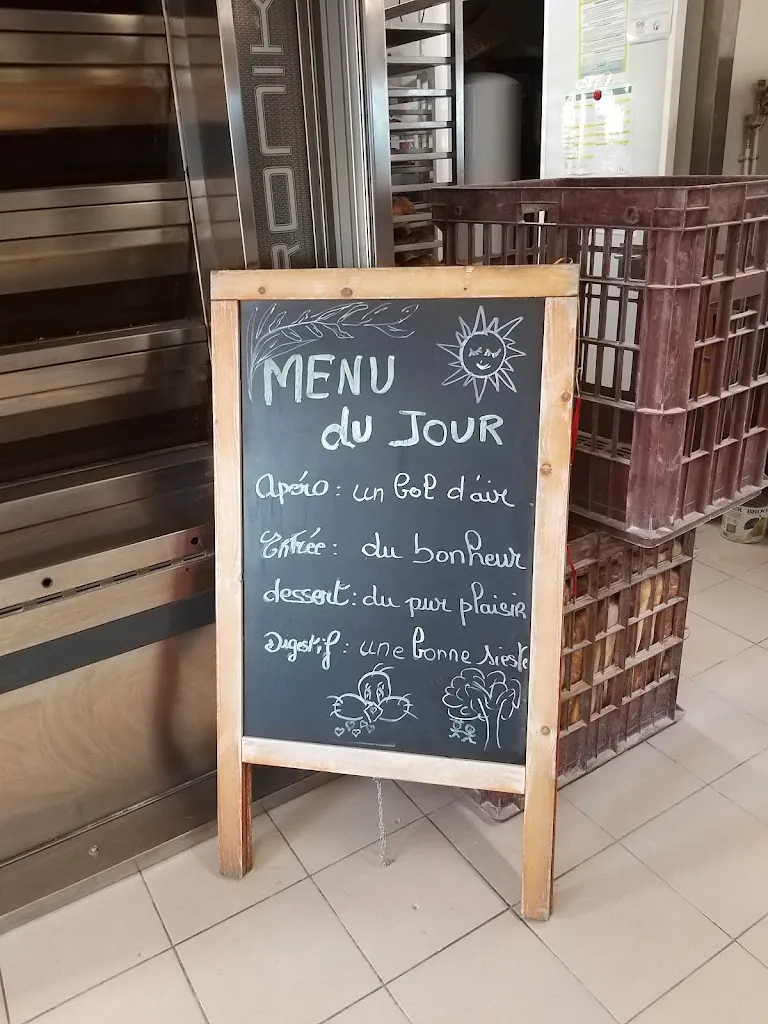 MENU
du JOUR
Apéro : un bol d'air
Entrée : du bonheur
dessert : du pur plaisir
Digestif : une bonne sieste